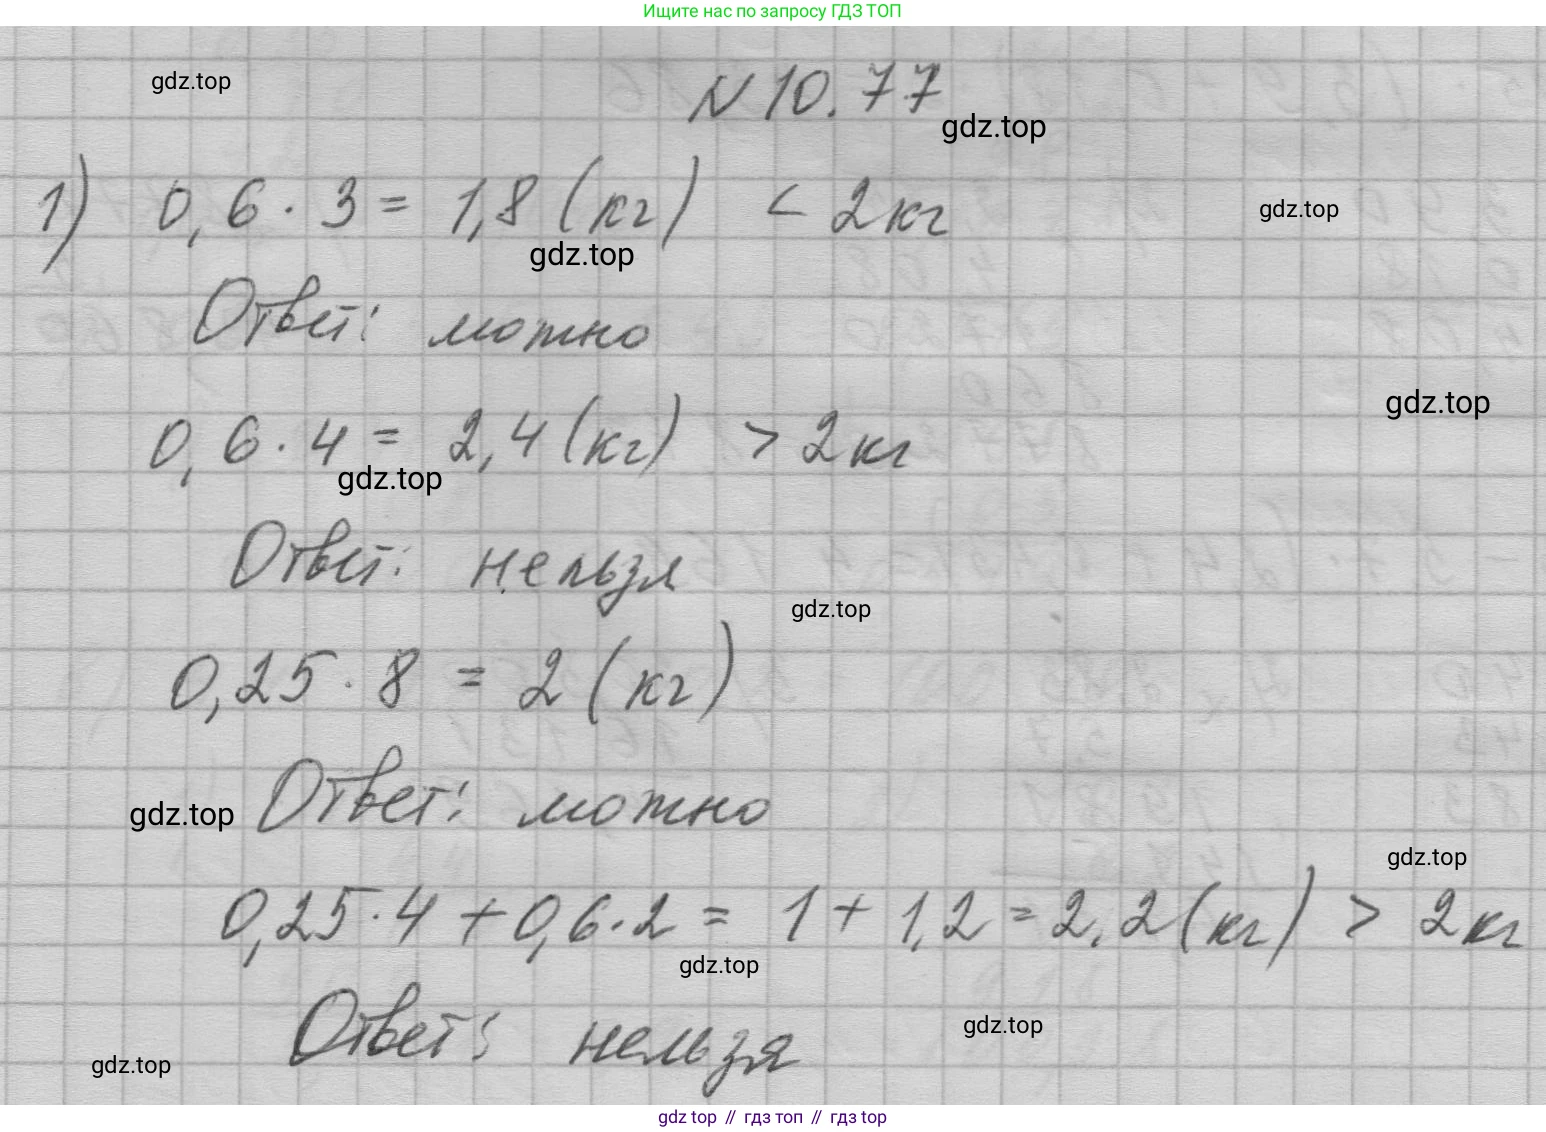 Ищите нас по запросу ГДЗ ТОП
gdz.top
N 10.77
gdz.top
1) 0,6 · 3 = 1,8 (кг) < 2кг
gdz.top
gdz.top
Ответ: можно
gdz.top
0,6 · 4 = 2,4 (кг) > 2кг
gdz.top
Ответ: нельзя
gdz.top
0,25 · 8 = 2 (кг)
gdz.top
Ответ: можно
gdz.top
0,25 · 4 + 0,6 · 2 = 1 + 1,2 = 2,2 (кг) > 2кг
gdz.top
Ответ: нельзя
gdz.top
gdz.top
gdz top // гдз топ // гдз top